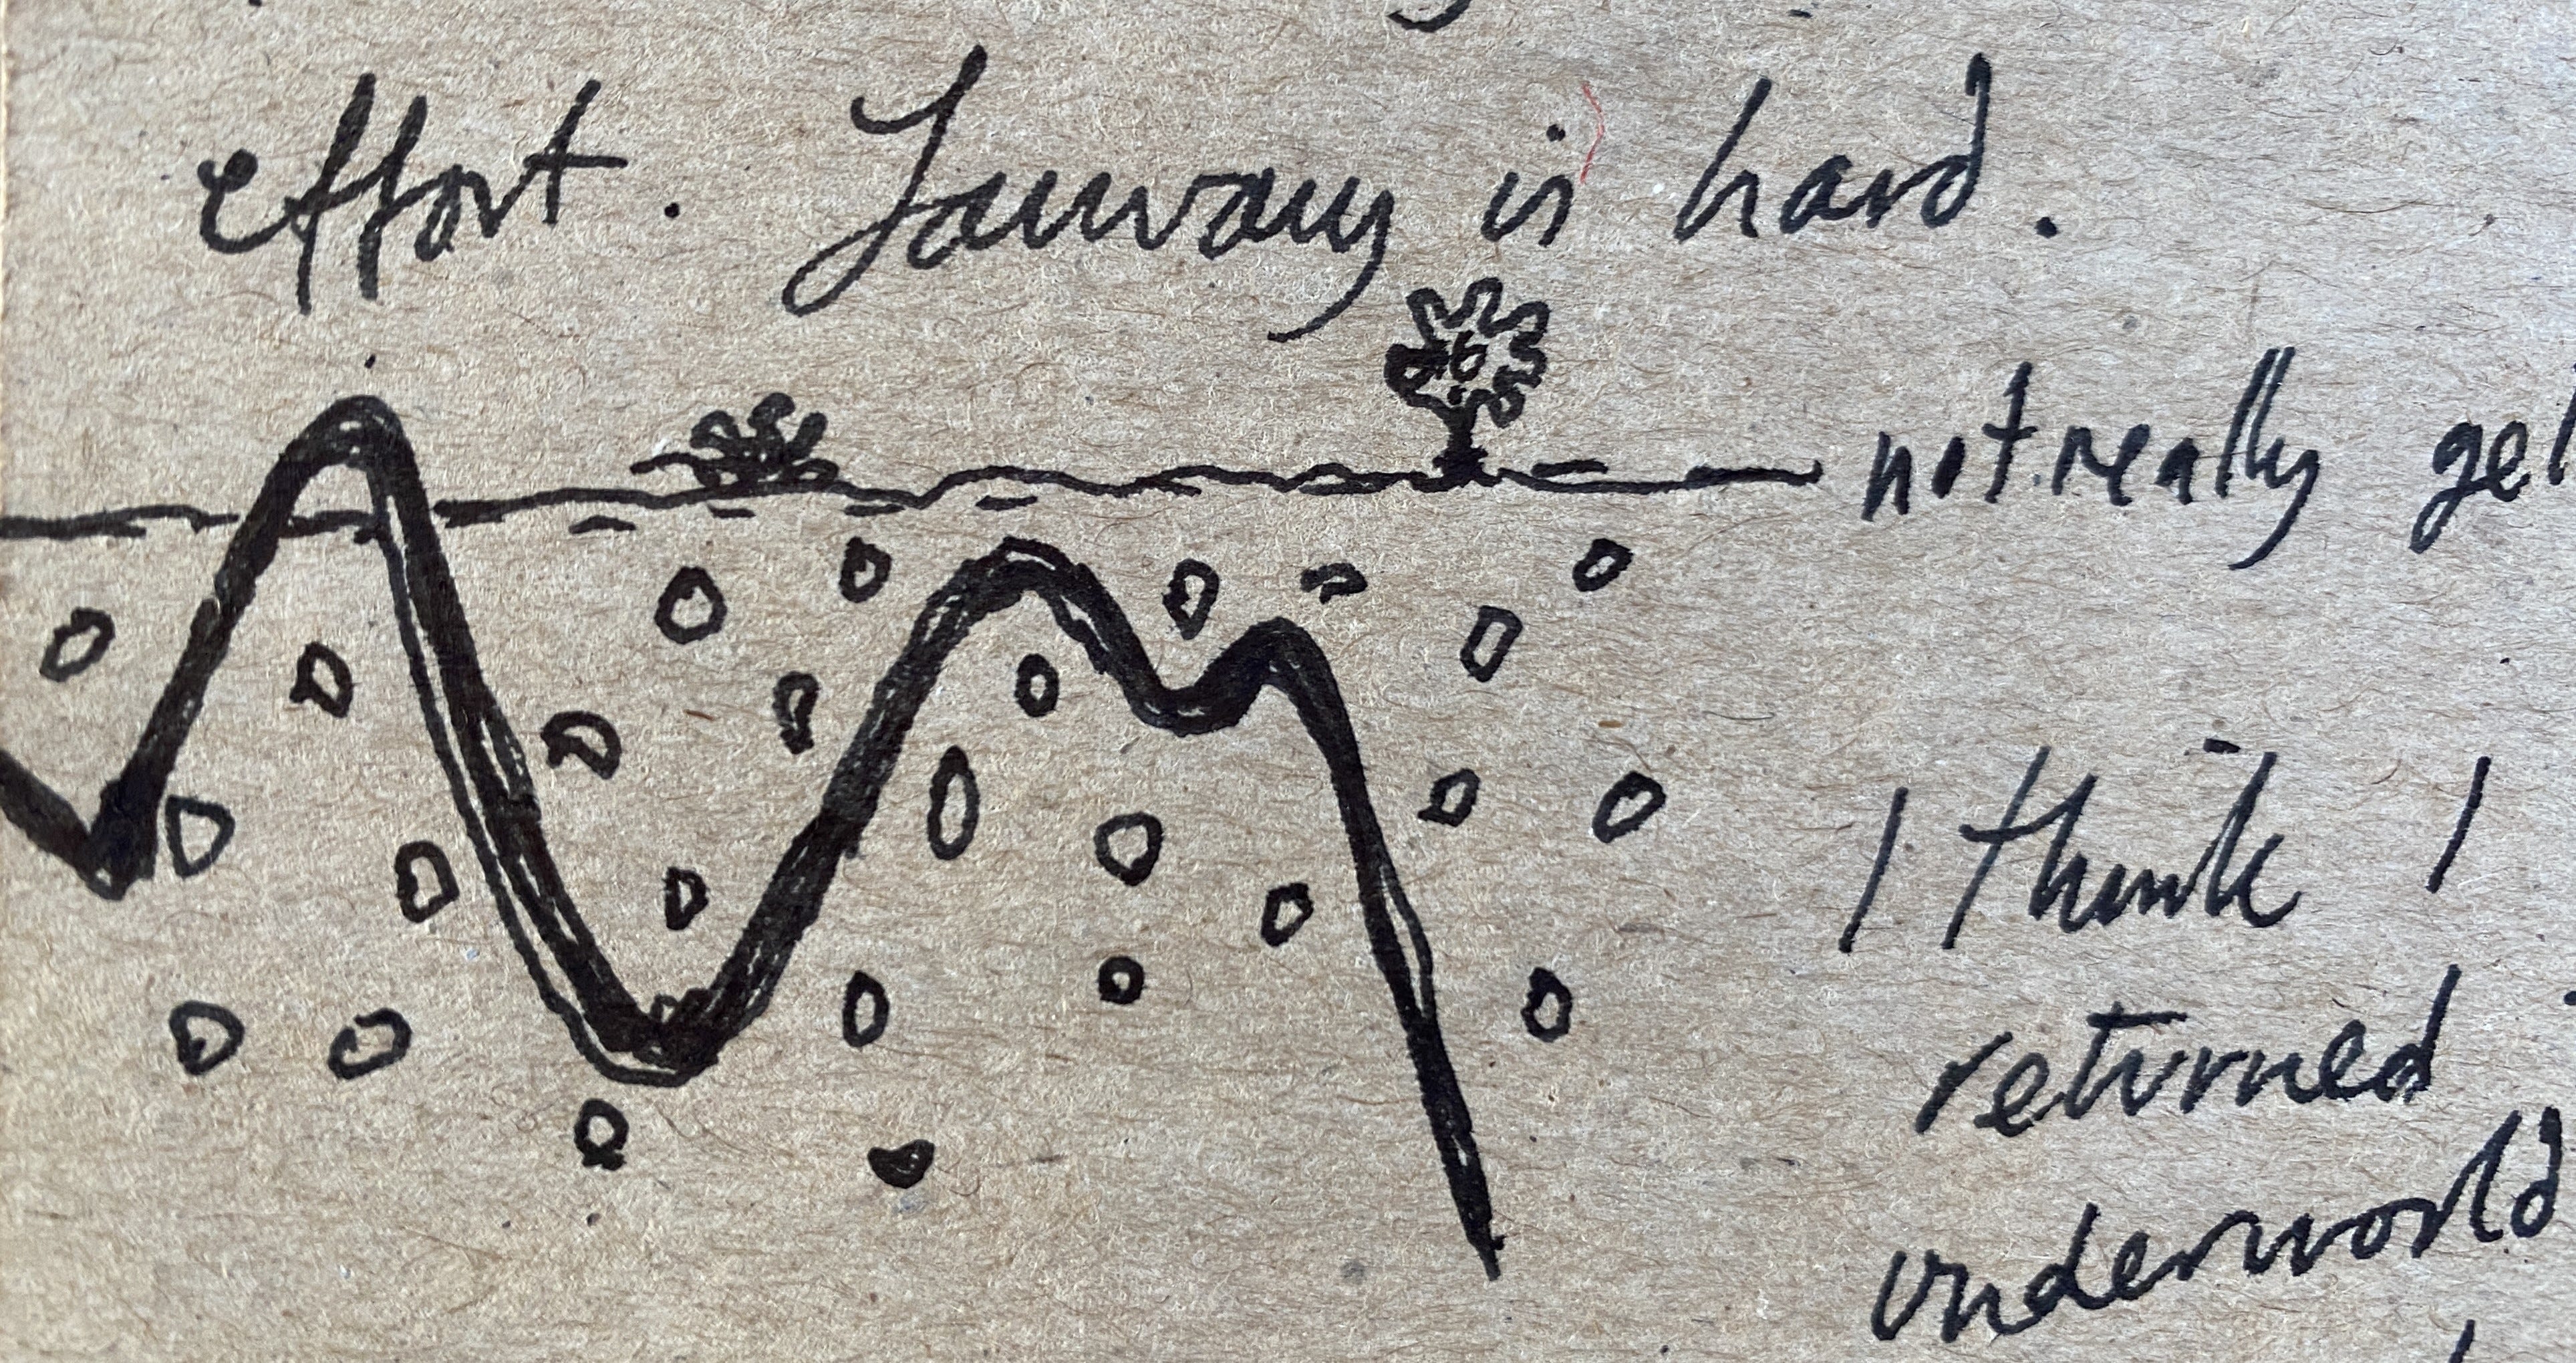 effort. January is hard.
not really
I think I
returned
underworld